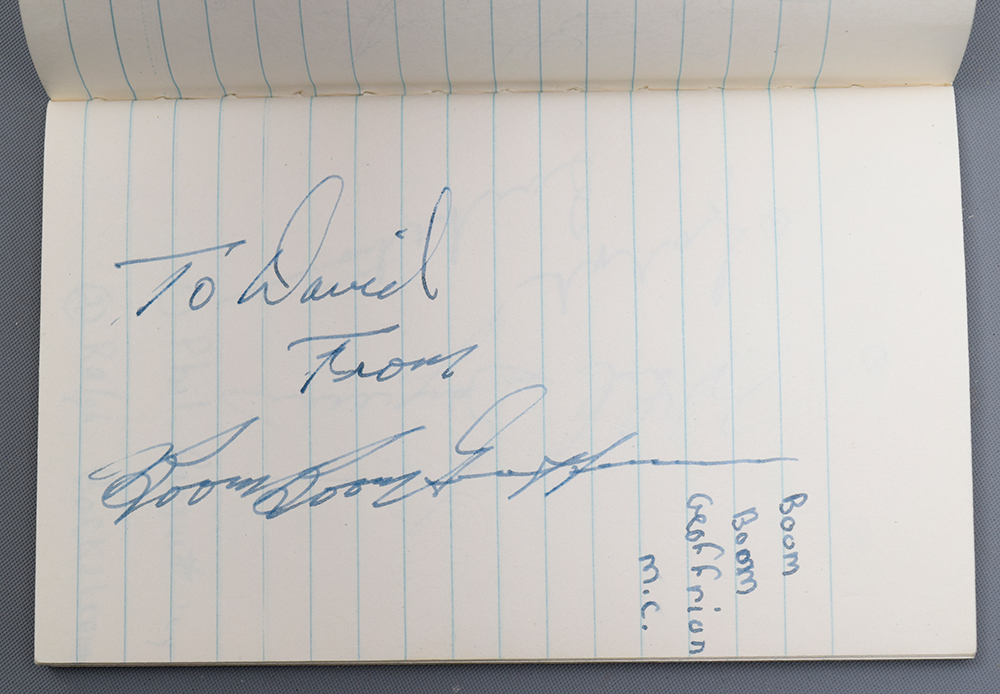 To David
From
Boom Boom Geoffrion
Boom
Boom
Geoffrion
M.C.